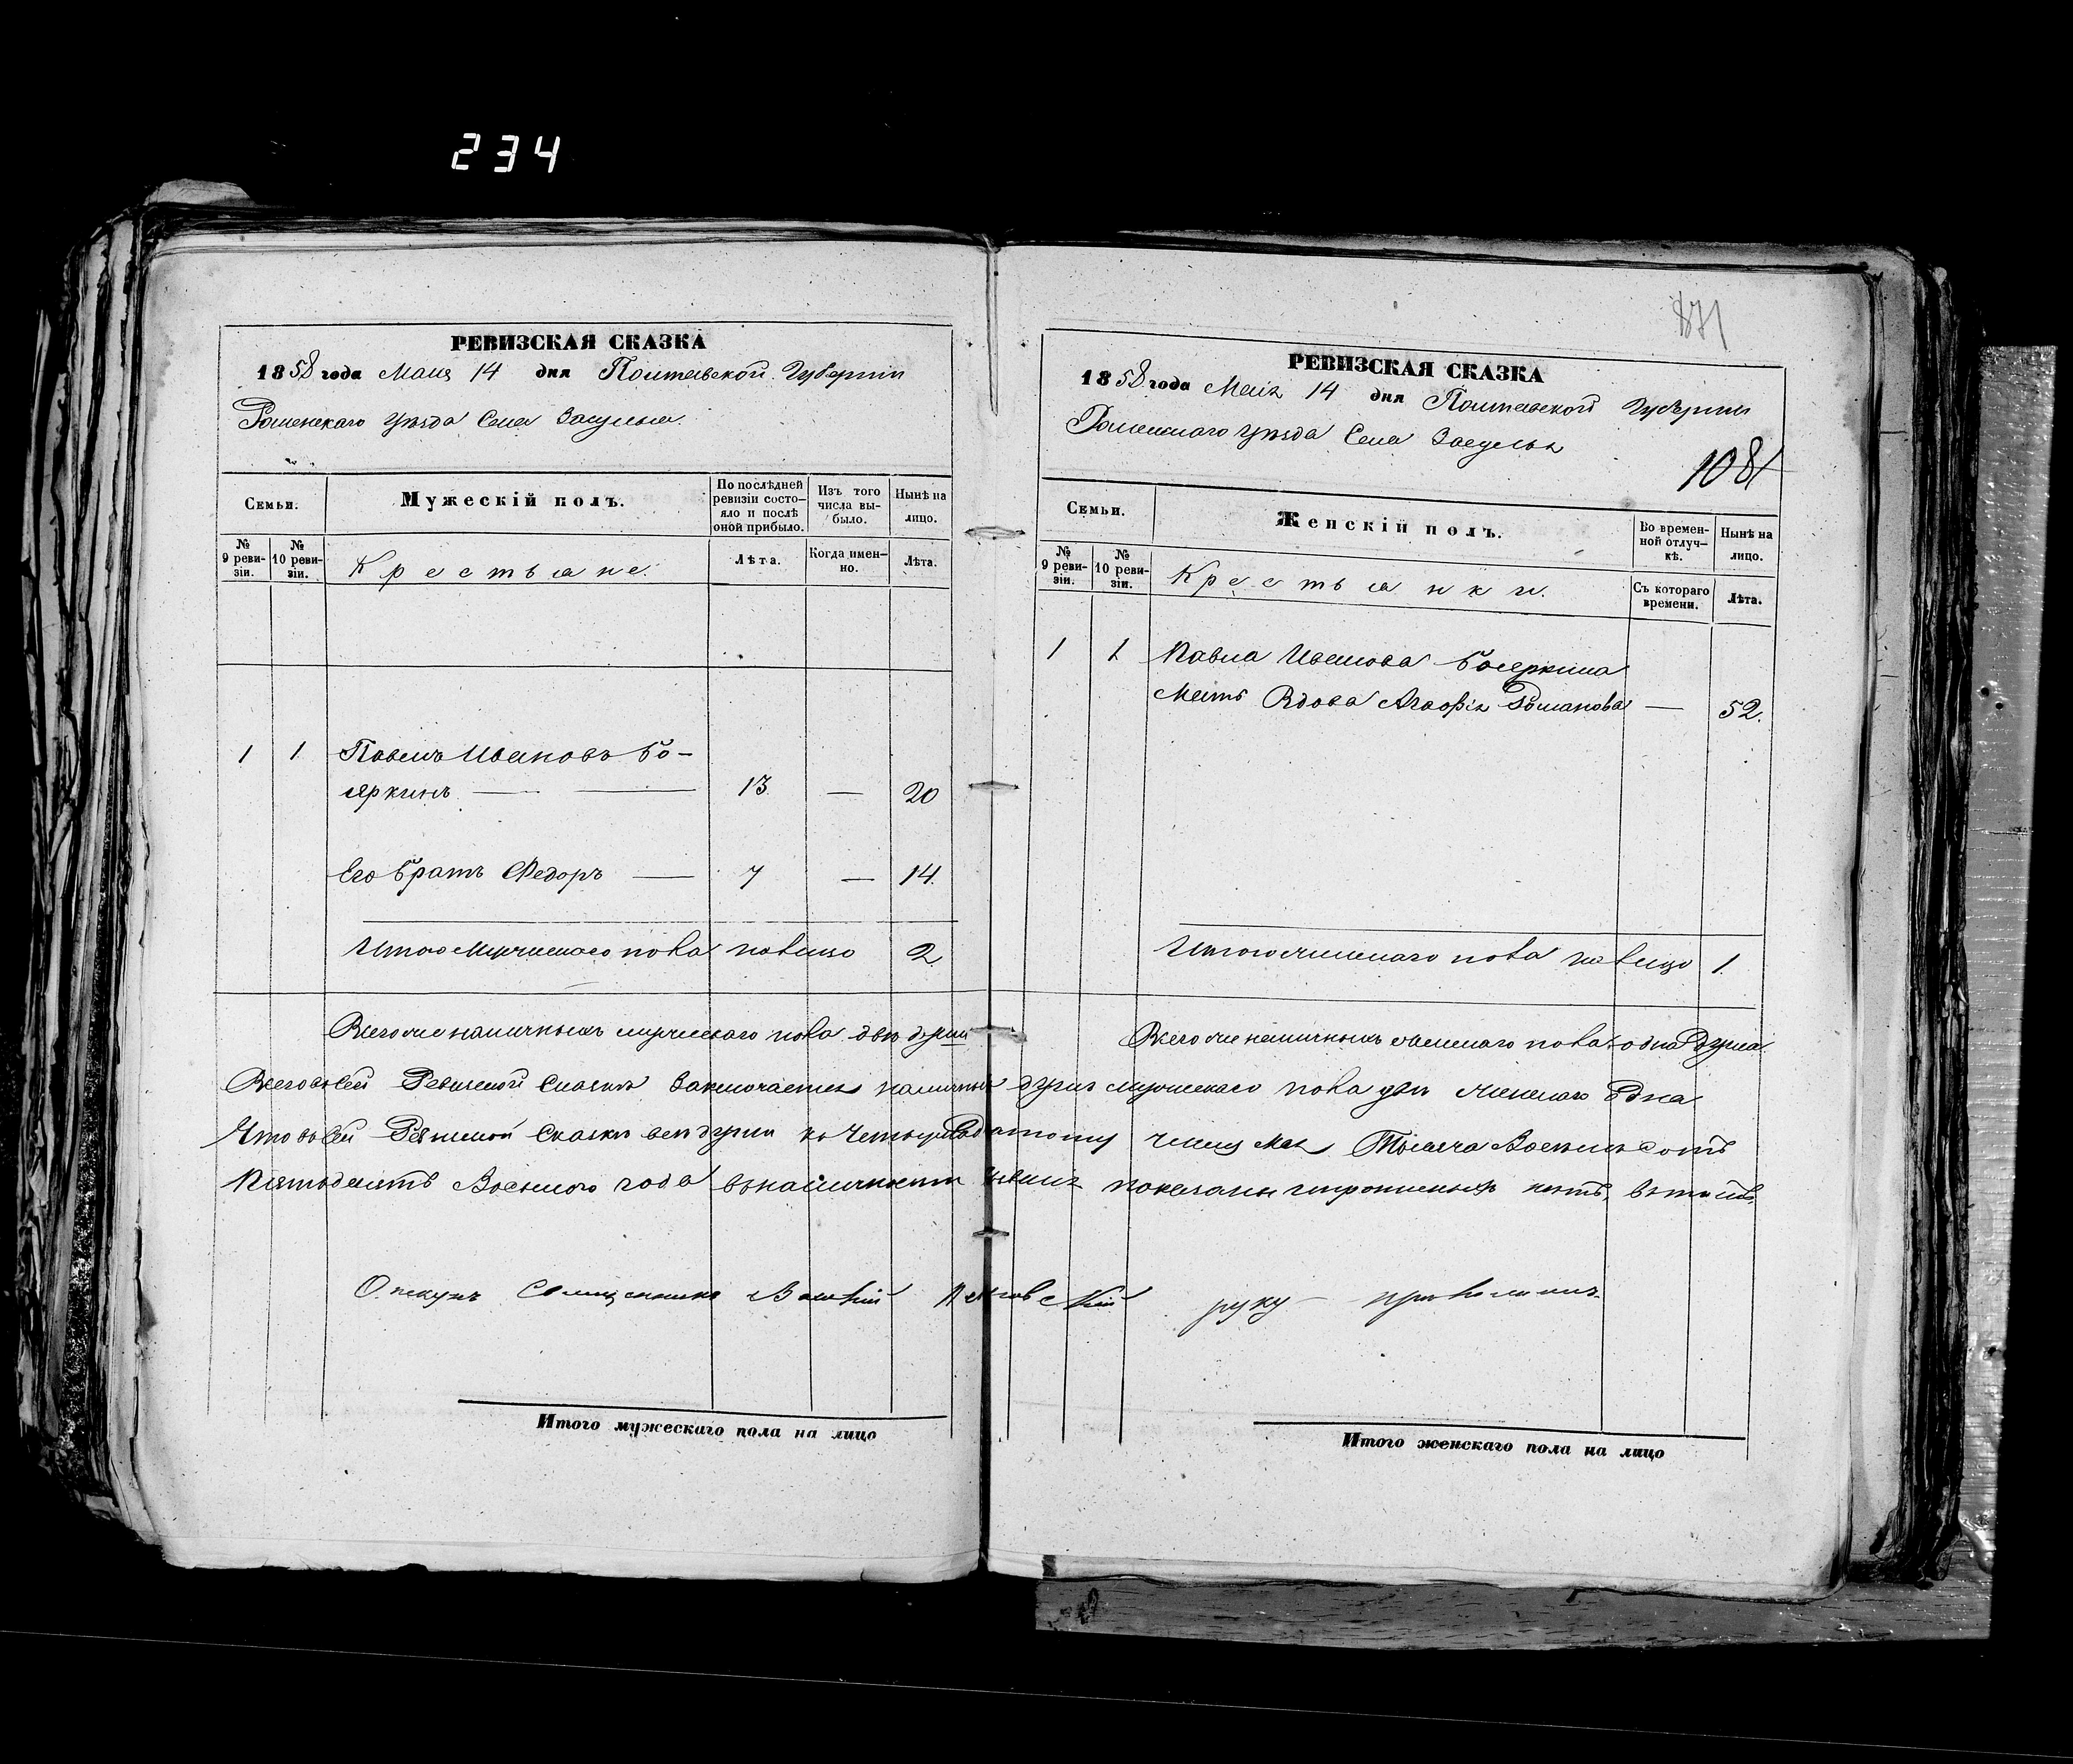 234
РЕВИЗСКАЯ СКАЗКА
1858 года Мая 14 дня Полтавской Губерніи
Роменскаго Уѣзда Села Засулья.
Семьи.
Мужескій полъ.
По послѣдней ревизіи состояло и послѣ оной прибыло.
Изъ того числа выбыло.
Нынѣ на лицо.
№ 9 ревизіи.
№ 10 ревизіи.
Крестьяне.
Лѣта.
Когда именно.
Лѣта.
1 1 Павелъ Ивановъ Бо-
яркинъ — 13 — 20
Его братъ Федоръ — 7 — 14.
Итого мужескаго пола налицо 2
871
РЕВИЗСКАЯ СКАЗКА
1858 года Мая 14 дня Полтавской Губерніи
Роменскаго Уѣзда Села Засулья
1081
Семьи.
Женскій полъ.
Во временной отлучкѣ.
Нынѣ на лицо.
№ 9 ревизіи.
№ 10 ревизіи.
Крестьянки.
Съ котораго времени.
Лѣта.
1 1 Павла Иванова Бояркина
Мать Вдова Агафія Романова — 52.
Итого женскаго пола налицо 1.
Всего же наличныхъ мужескаго пола двѣ души
Всего же наличныхъ женскаго пола одна Душа.
Всего въ сей Ревизской Сказкѣ Заключается наличныхъ душъ мужескаго пола двѣ женскаго Одна
Что въ сей Ревизской Сказкѣ всѣ души къ Четырнадцатому числу Мая Тысяча Восемь Сотъ
Пятьдесятъ Восьмого года въ наличности показаны и пропущенныхъ нѣтъ, въ томъ
Опекунъ Священникъ руку приложилъ
Итого мужескаго пола на лицо
Итого женскаго пола на лицо